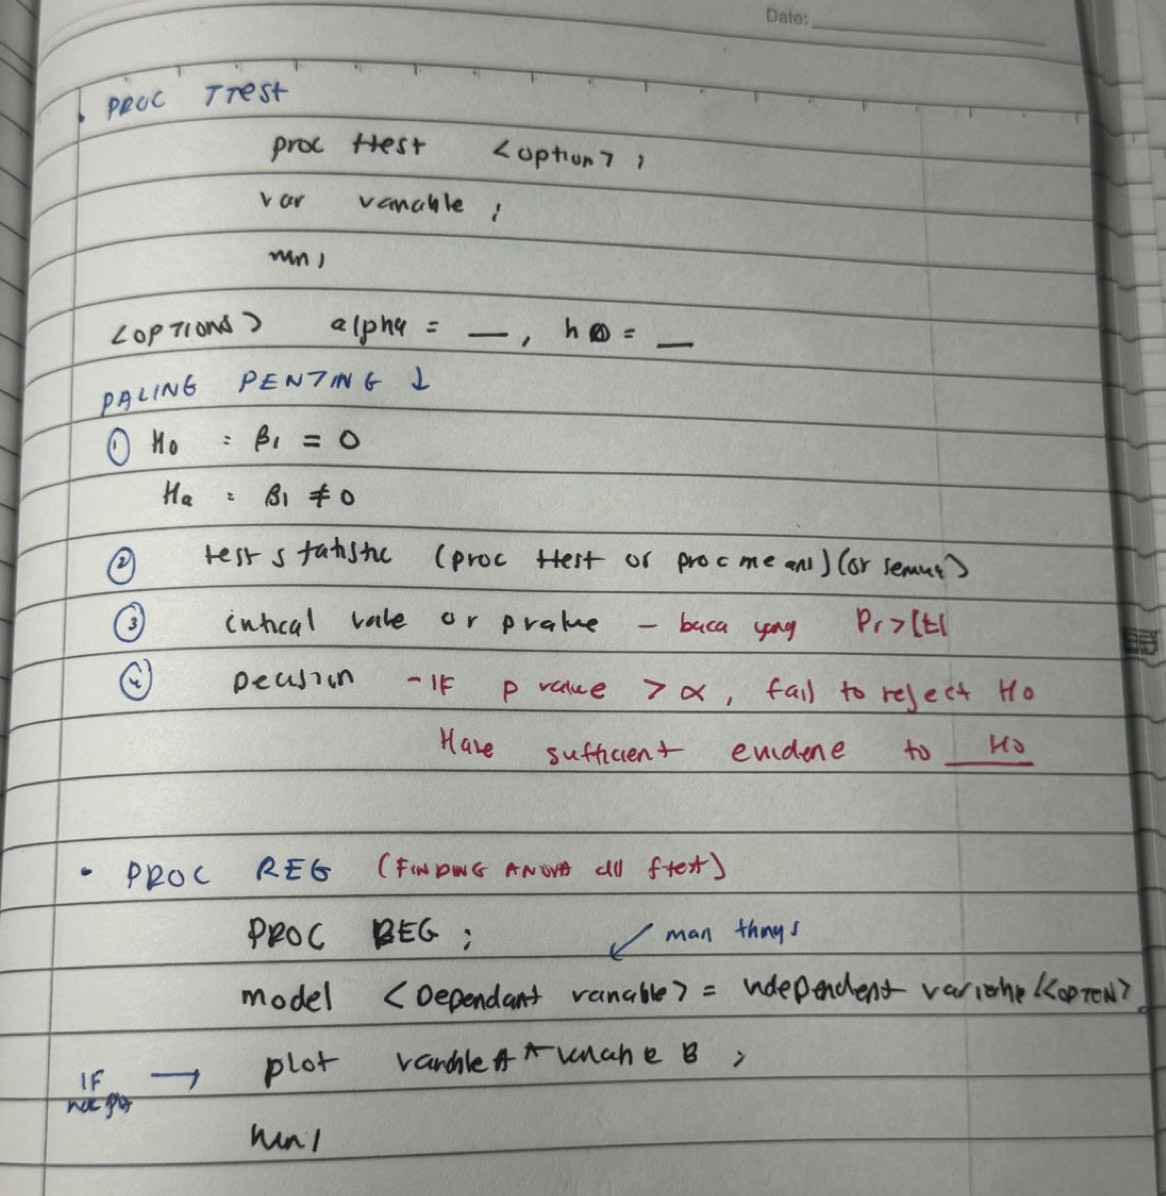 Date:
• PROC TTest
proc ttest <option> ;
var variable ;
run ;
<OPTIONS> alpha = __ , h0 = __
PALING PENTING ↓
① H0 : β1 = 0
Ha : β1 ≠ 0
② test statistic (proc ttest or proc means) (or semua)
③ critical value or pvalue – baca yang Pr>|t|
④ Decision - IF p value > α , fail to reject H0
Have sufficient evidene to H0
• PROC REG (FINDING ANOVA dll ftest)
PROC REG ;
man thngs
model <Dependant variable> = independent variable /<OPTION>
plot variable A * variable B ;
IF →
run ;